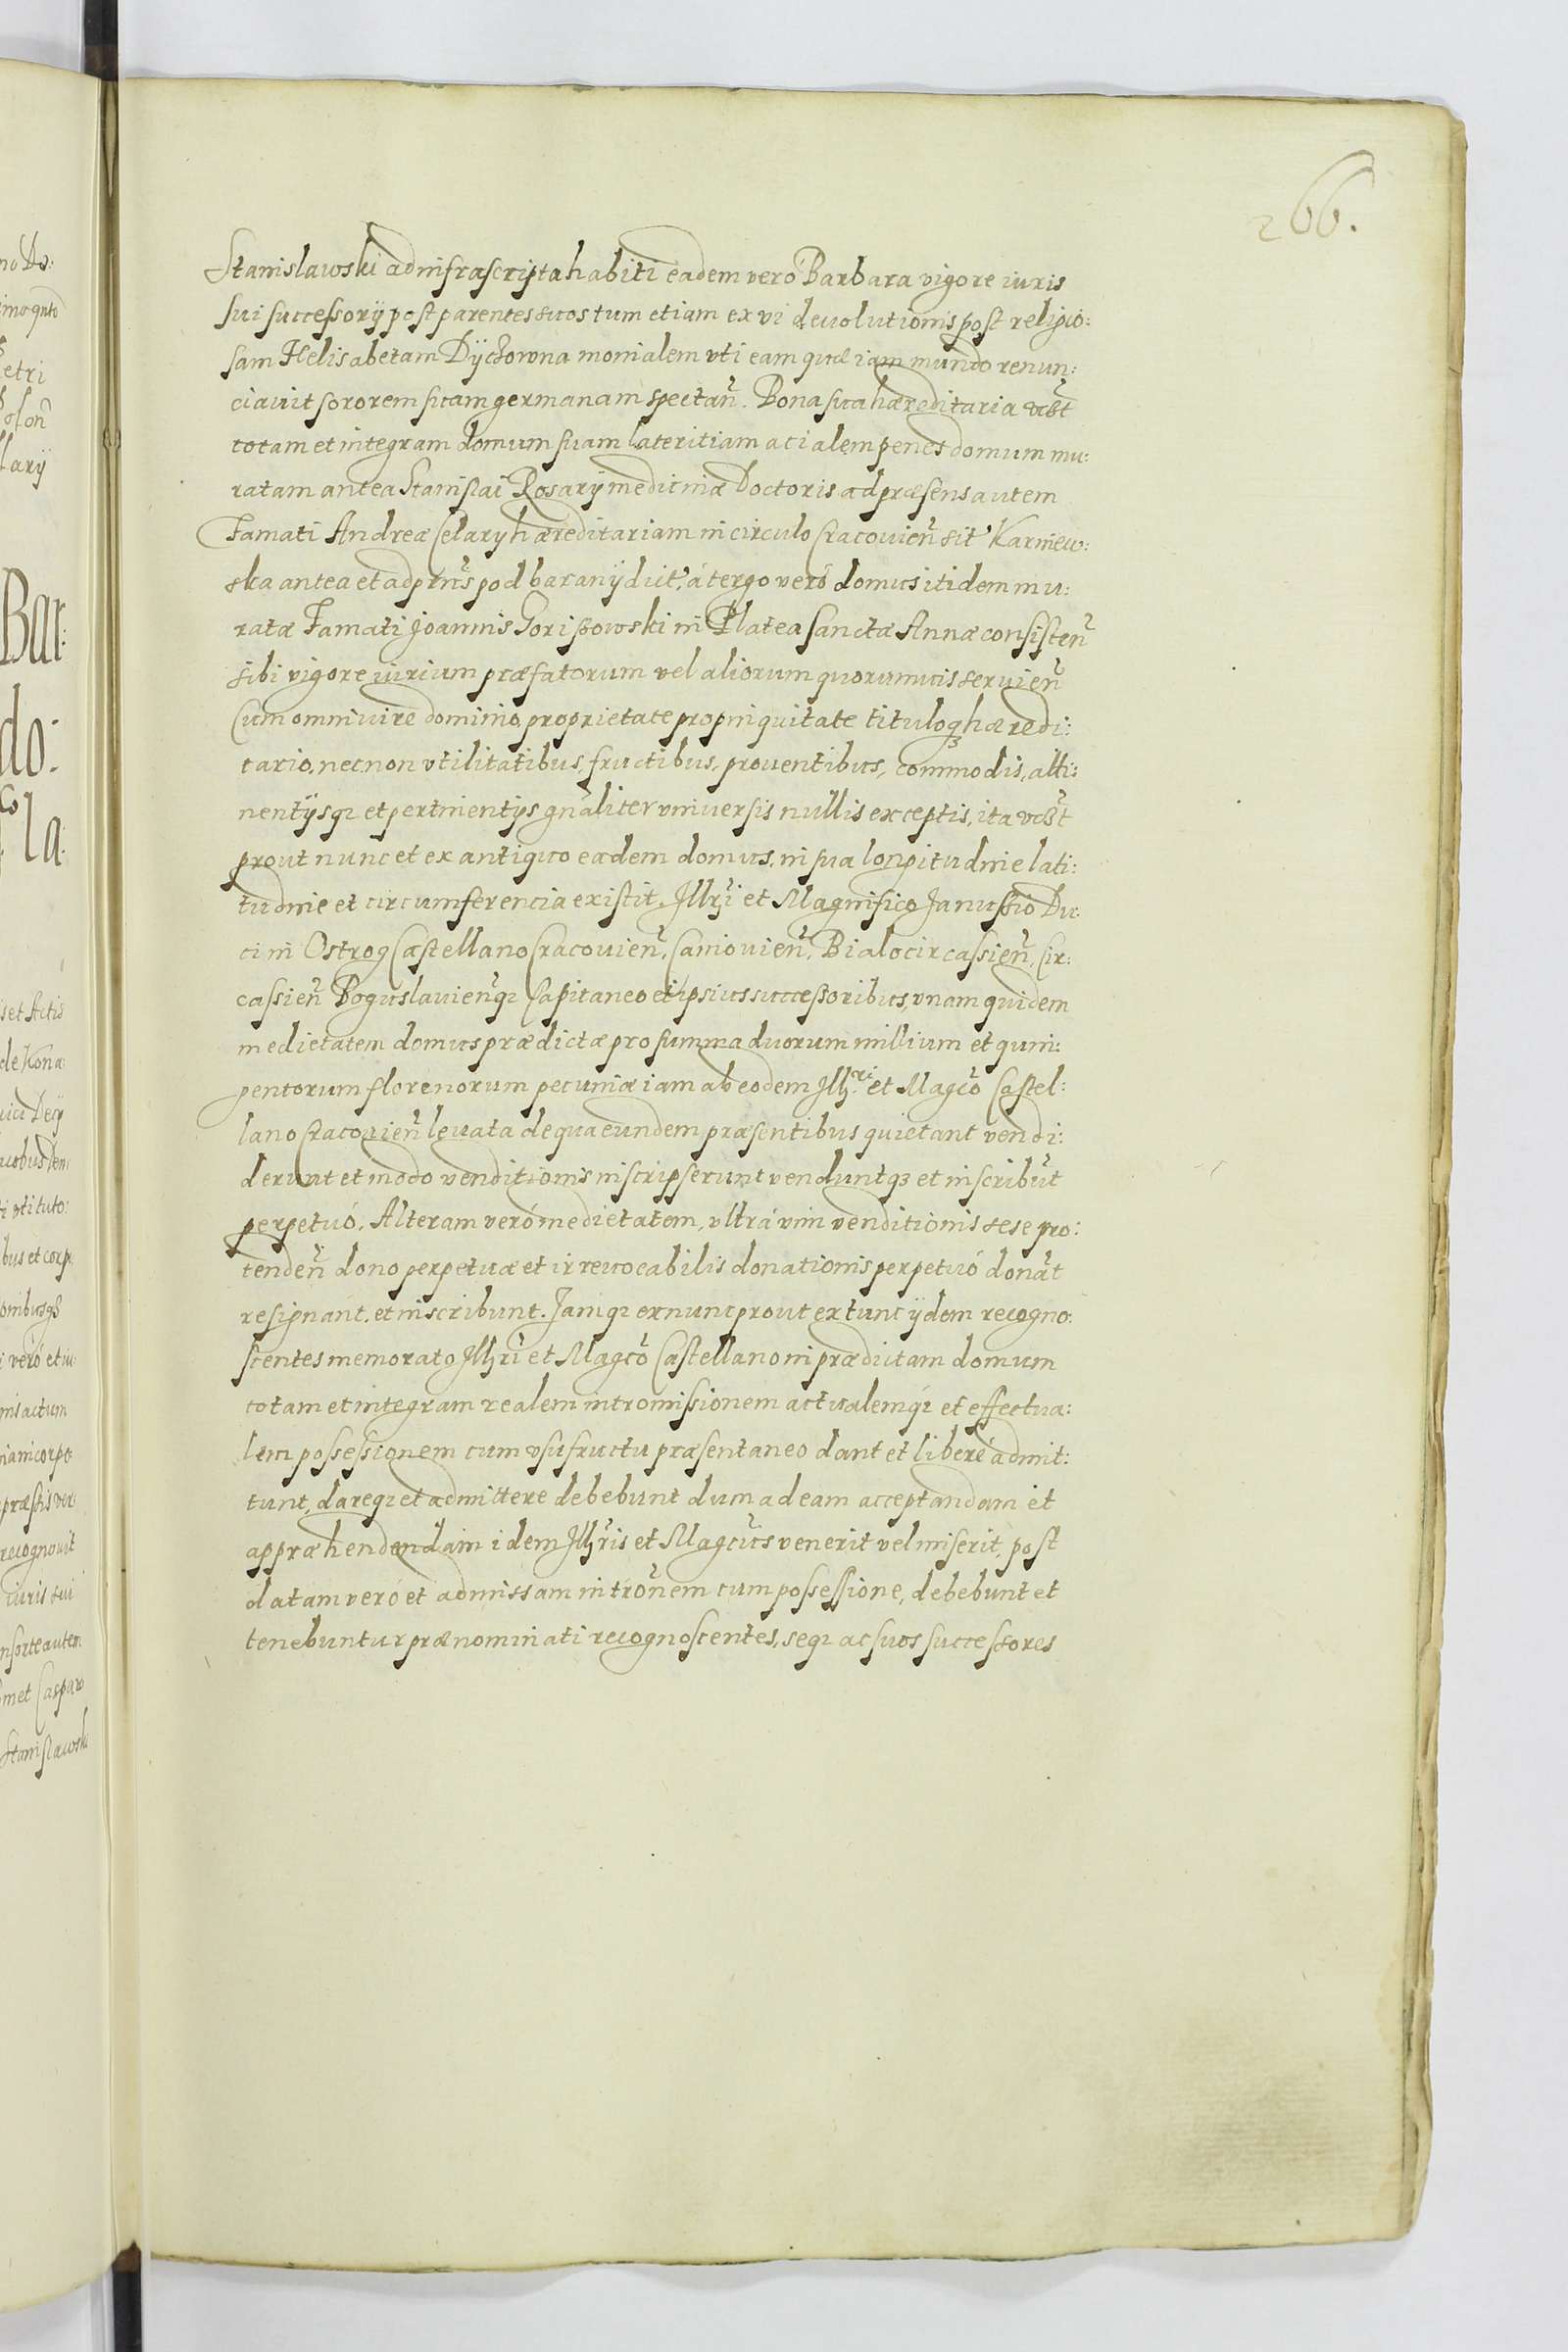 266.
Stanislawski ad infrascripta habiti eadem vero Barbara vigore iuris
sui successorÿ post parentes suos tum etiam ex vi deuolutionis post religio:
sam Helisabetam Dÿctowna monialem vti eam quæ iam mundo renun:
ciauit sororem suam germanam spectan̄. Bona sua hæreditaria viꝫt
totam et integram domum suam lateritiam acialem penes domum mu:
ratam antea Stanislai Rosarÿ medicinæ Doctoris ad præsens autem
Famati Andreæ Celary hæreditariam in circulo Cracouien̄ sit' Karniew:
ska antea et ad prn̄s pod baranÿ dict', á tergo veró domus itidem mu:
ratæ Famati Joannis Gorißowski in Platea Sanctæ Annæ consisten̄
sibi vigore iurium præfatorum vel aliorum quorumuis seruien̄
Cum omni iure dominio, proprietate propinquitate tituloqꝫ hæredi:
tario, necnon vtilitatibus, fructibus, prouentibus, commodis, atti:
nentÿsqꝫ et pertinentÿs gn̄aliter vniuersis nullis exceptis, ita viꝫt
prout nunc et ex antiquo eadem domus, in sua longitudine lati:
tudine et circumferencia existit, Illr̄i et Magnifico Janussio Du:
ci in Ostrog Castellano Cracouien̄, Caniouien̄, Bialocircassien̄, Cir:
cassien̄ Boguslauien̄qꝫ Capitaneo et ipsius successoribus, vnam quidem
medietatem domus prædictæ pro summa duorum millium et quin:
gentorum florenorum pecuniæ iam ab eodem Illr̄i et Magc̄o Castel:
lano Cracouien̄ leuata de qua eundem præsentibus quietant vendi:
derunt et modo venditionis inscripserunt venduntqꝫ et inscribūt
perpetuó. Alteram veró medietatem, vltrá vim venditionis sese pro:
tenden̄ dono perpetuæ et irreuocabilis donationis perpetuó donāt
resignant, et inscribunt. Jamqꝫ ex nunc prout ex tunc ÿdem recogno:
scentes memorato Illr̄i et Magc̄o Castellano in prædictam domum
totam et integram realem intromissionem actualemqꝫ et effectua:
lem possessionem cum vsufructu præsentaneo dant et liberé admit:
tunt, dareqꝫ et admittere debebunt dum ad eam acceptandam et
appræhendendam idem Illr̄is et Magcūs venerit vel miserit, post
datam veró et admissam intrōnem cum possessione, debebunt et
tenebuntur prænominati recognoscentes, seqꝫ ac suos successores